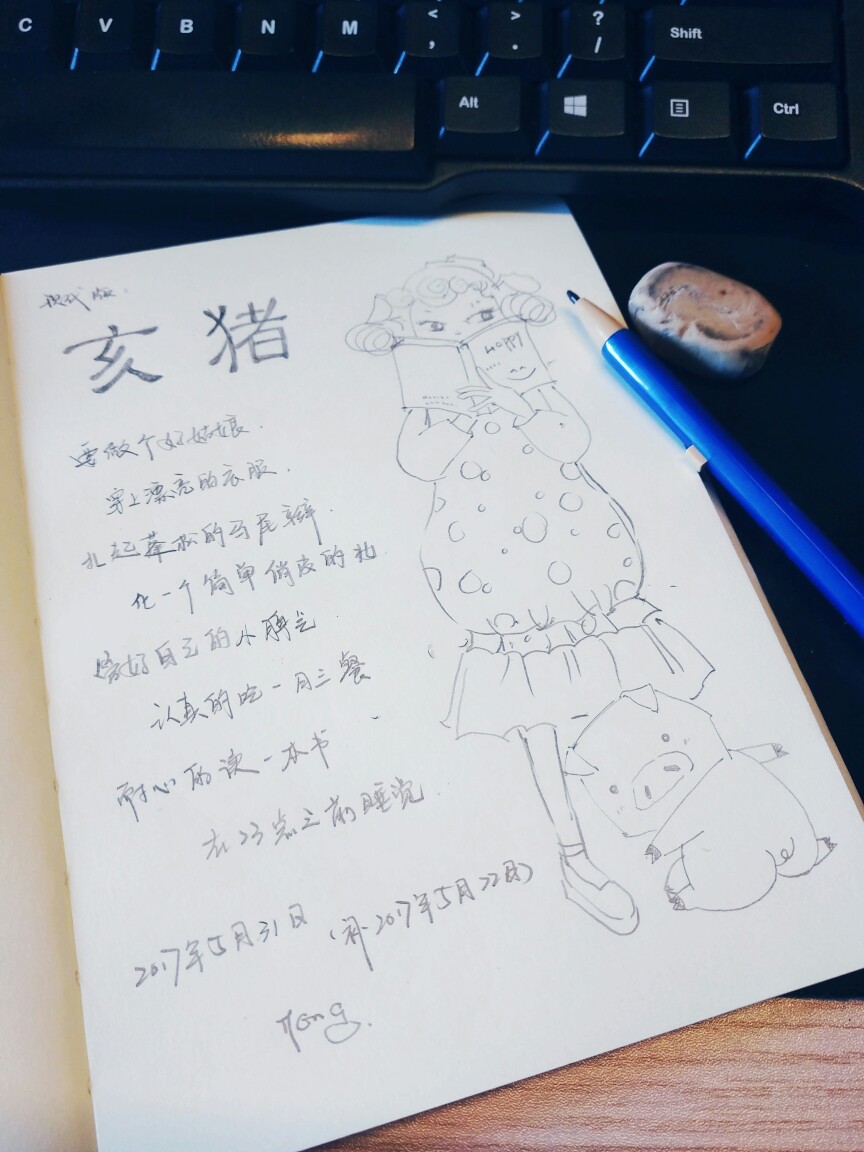 C V B N M < , > . ? / Shift
Alt Ctrl
现代版.
亥猪
HAPPY
要做个好姑娘.
穿上漂亮的衣服.
扎起蓬松的马尾辫.
化一个简单俏皮的妆
养好自己的小脾气.
认真的吃一日三餐
耐心的读一本书
在23点之前睡觉.
2017年5月31日 (补2017年5月22日)